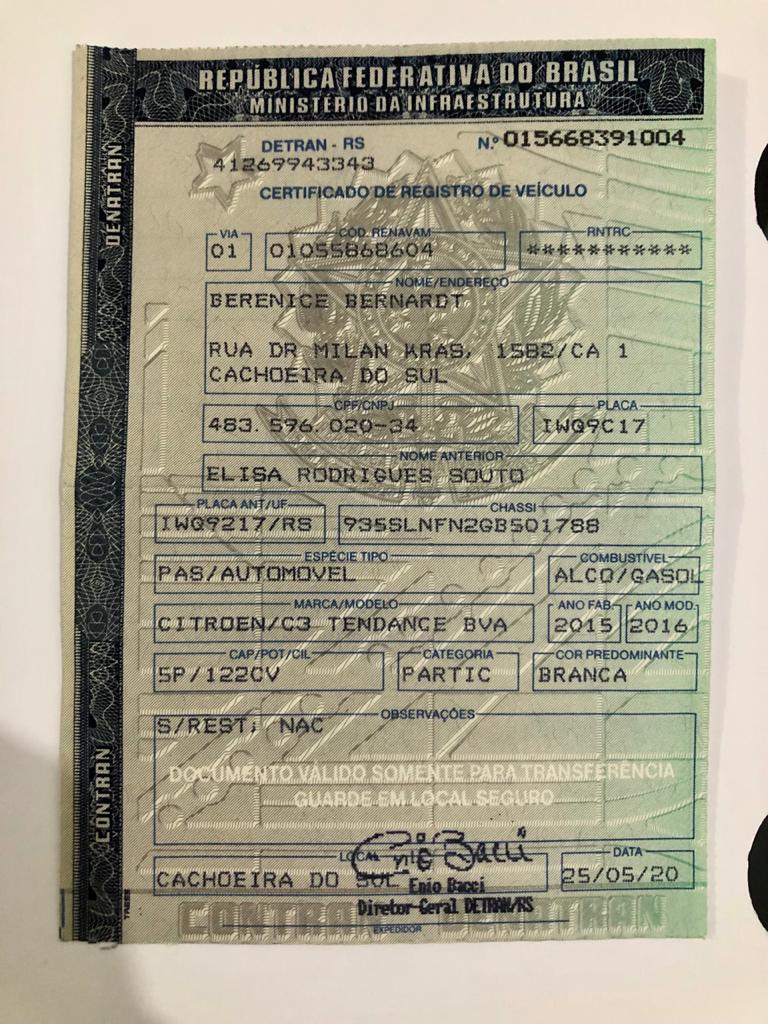 REPÚBLICA FEDERATIVA DO BRASIL
MINISTÉRIO DA INFRAESTRUTURA
DENATRAN
CONTRAN
DETRAN - RS
N.º 015668391004
41269943343
CERTIFICADO DE REGISTRO DE VEÍCULO
VIA
CÓD. RENAVAM
RNTRC
01
01055868604
***********
NOME/ENDEREÇO
BERENICE BERNARDT
RUA DR MILAN KRAS, 1582/CA 1
CACHOEIRA DO SUL
CPF/CNPJ
PLACA
483.596.020-34
IWQ9C17
NOME ANTERIOR
ELISA RODRIGUES SOUTO
PLACA ANT/UF
CHASSI
IWQ9217/RS
935SLNFN2GB501788
ESPÉCIE TIPO
COMBUSTÍVEL
PAS/AUTOMOVEL
ALCO/GASOL
MARCA/MODELO
ANO FAB.
ANO MOD.
CITROEN/C3 TENDANCE BVA
2015
2016
CAP/POT/CIL
CATEGORIA
COR PREDOMINANTE
5P/122CV
PARTIC
BRANCA
OBSERVAÇÕES
S/REST; NAC
DOCUMENTO VÁLIDO SOMENTE PARA TRANSFERÊNCIA
GUARDE EM LOCAL SEGURO
LOCAL
DATA
CACHOEIRA DO SUL
25/05/20
Enio Bacci
Enio Bacci
Diretor-Geral DETRAN/RS
EXPEDIDOR
CONTRAN DENATRAN